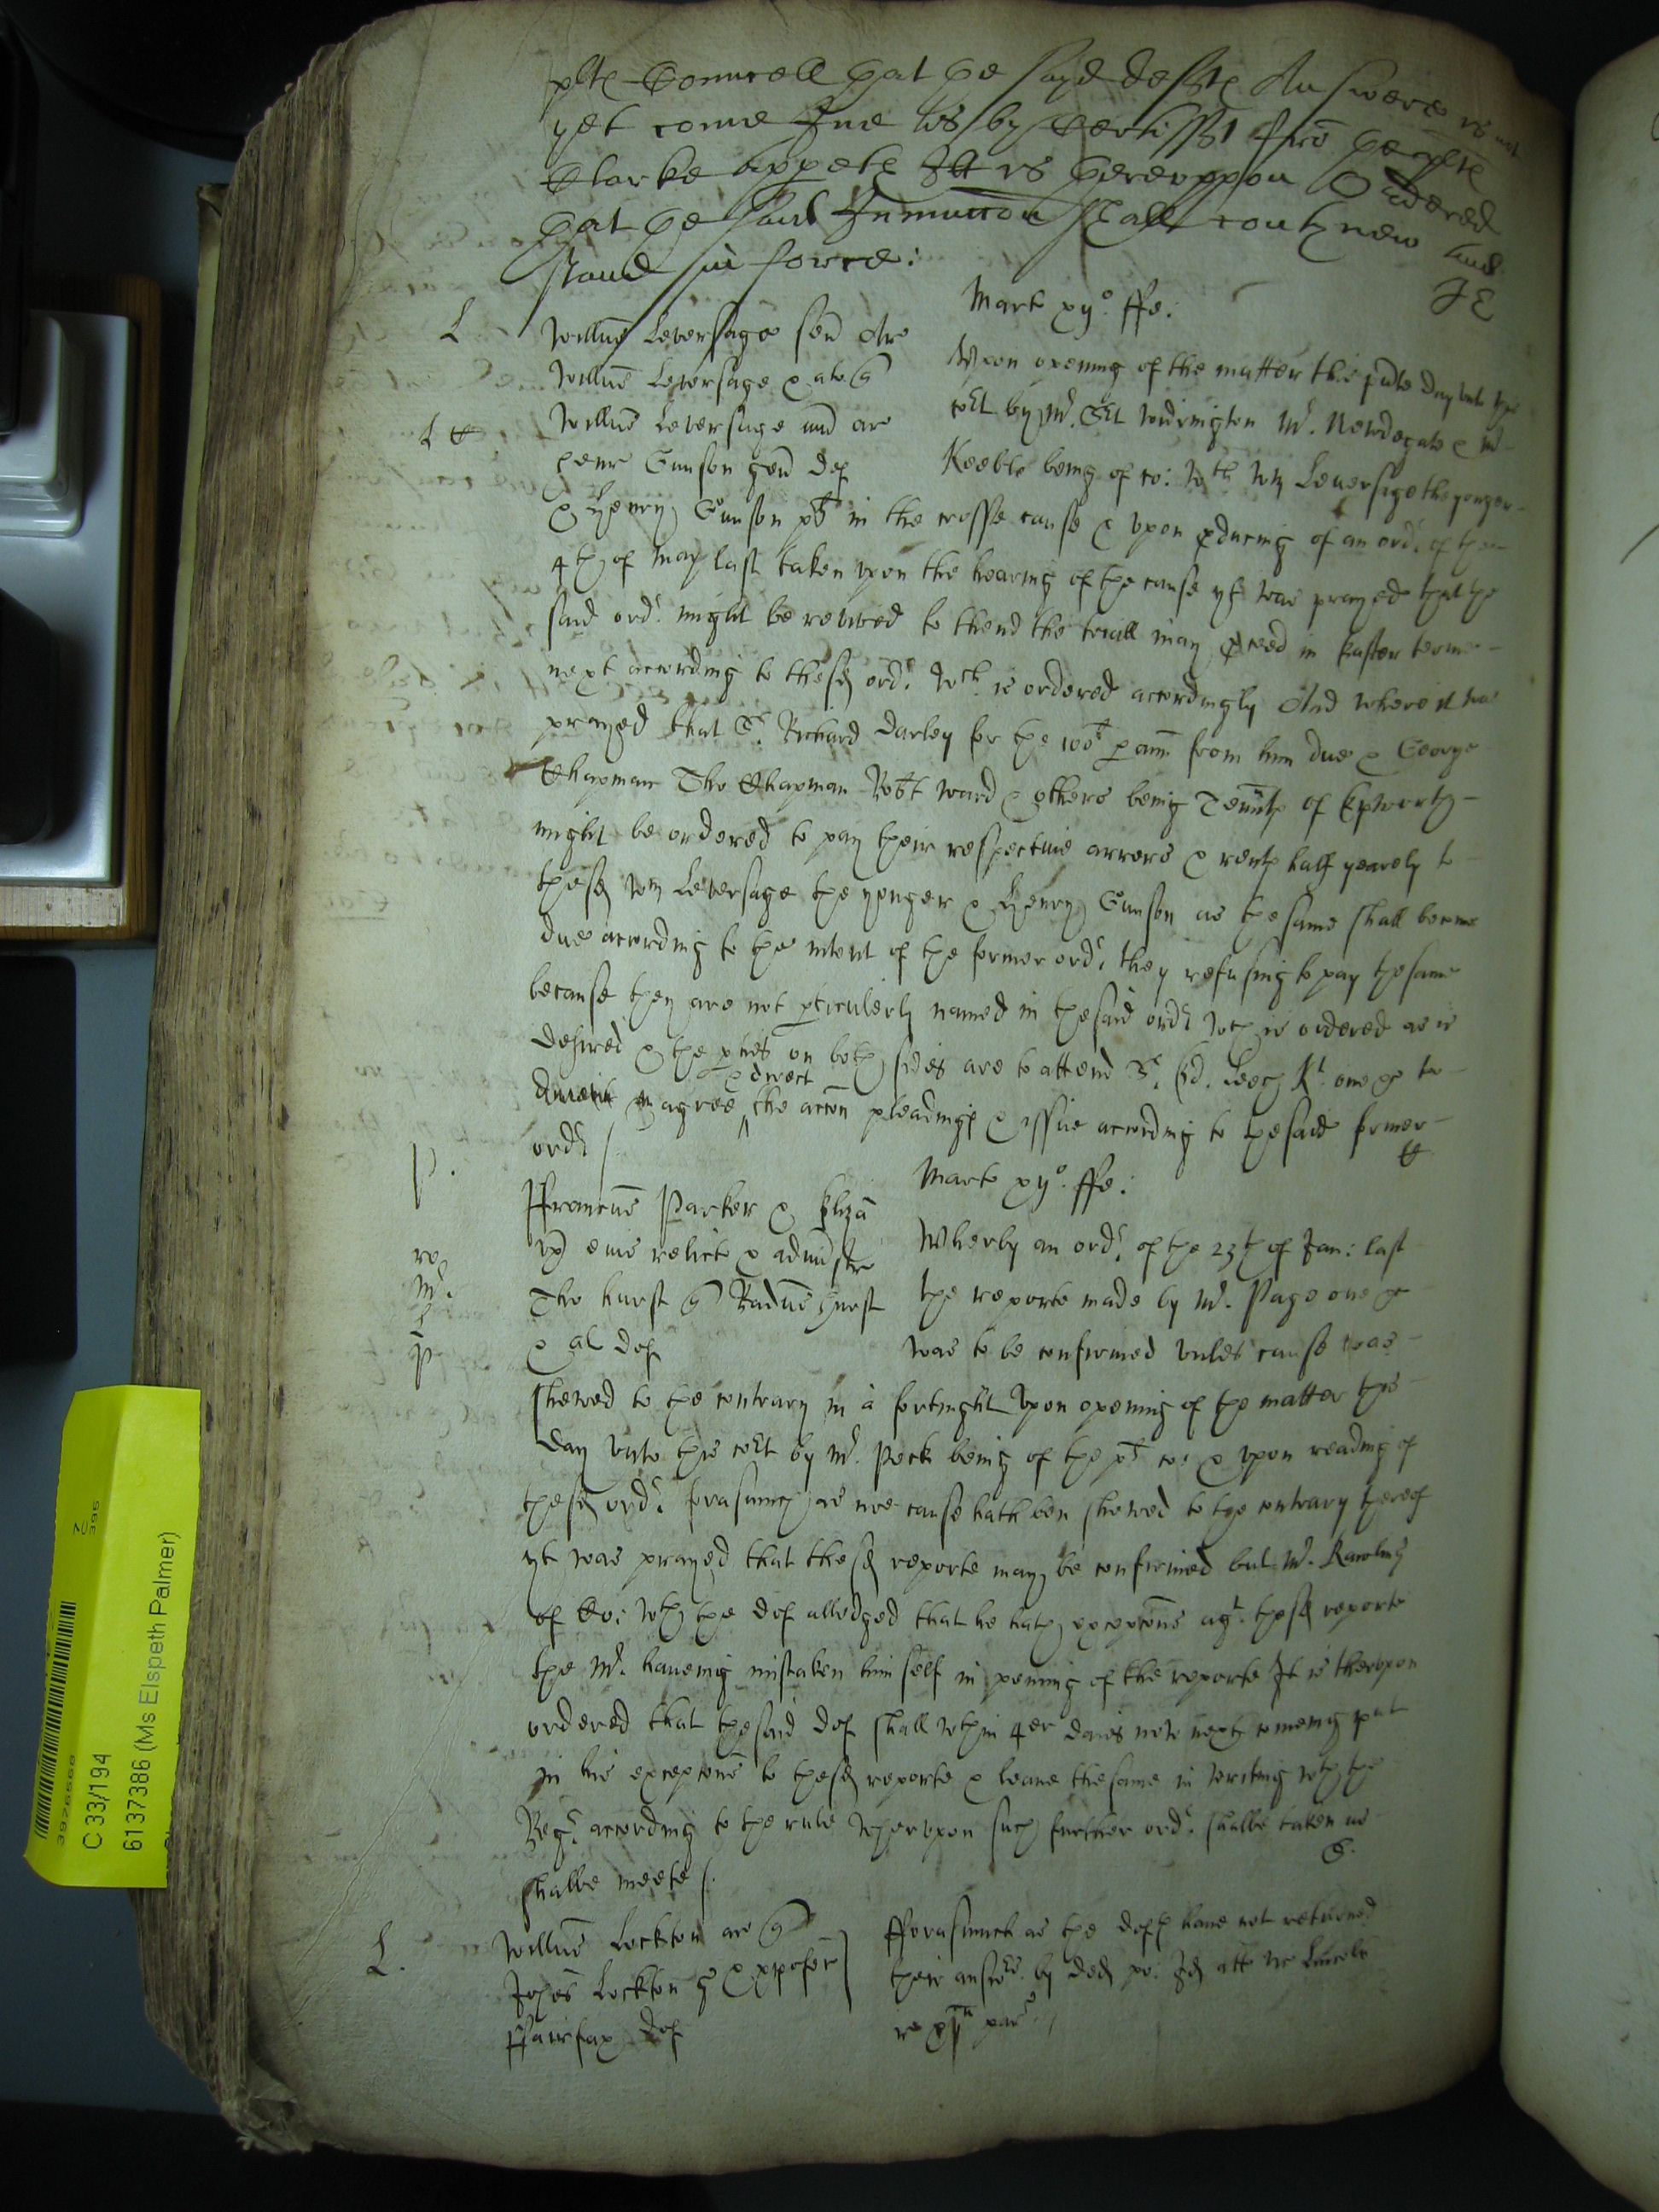 plte Councell that the sayd defte Answere is not
yet come Inn as by Certifft from the plte
Clarke appeth Itt is thereuppon Ordered
that the said Iniunction shall contynew and
stand in force:
J E
L
Willus Leversage sen Are
Willus Leversage & ale q
L C
Willus Leversage iund are
henr Gunson gen def
Marte xijo. ffe:
Upon opening of the matter this pnte day unto the
cort by Mr. Sert Widrington Mr. Newdegate & Mr
Keeble being of co: wth Wm Leversage the yonger
& Henry Gunson plt in the crosse cause & upon pducing of an ordr. of the
4th of May last taken upon the hearing of the cause yt was prayed that the
said ordr. might be revived to thend the triall may pceed in Easter terme
next according to the sd ordr. wch. is ordered accordingly And where it was
prayed that Sr. Richard Darley for the 100l p ann from him due & George
Chapman Tho Chapman Robt Ward & others being Tennts of Epworth
might be ordered to pay their respective arrers & rents half yearely to
the sd Wm Leversage the yonger & Henry Gunson as the same shall become
due according to the intent of the former ordr. they refusing to pay the same
because they are not pticulerly named in the said ordr wch is ordered as is
desired & the pties on both sides are to attend Sr. Ed. Leech Kt. one &c to
& direct
agree the accon pleadings & issue according to the said former
ordr /.
C
P.
Francus Parker & Eliza
ux eius relict & admstr
Tho hurst q Radus hurst
& al def
re
Mr.
P
Marte xijo. ffe:
Wherby an ordr. of the 23th of Jan: last
the reporte made by Mr. Page one &c
was to be confirmed unles cause was
shewed to the contrary in a fortnight Upon opening of the matter this
day unto this cort by Mr. Peck being of the plt co: & upon reading of
the sd ordr. forasmuch as noe cause hath ben shewed to the contrary thereof
yt was prayed that the sd reporte may be confirmed but Mr. Rawlins
of Co: wth the def alledged that he hath excepcons agt. the sd reporte
the Mr. haveing mistaken him self in penning of the reporte It is therupon
ordered that the said def shall wthin 4er daies now next comeing put
in his excepcons to the sd reporte & leave the same in writing wth the
Regr. according to the rule wherupon such further ordr. shalbe taken as
shalbe meete /.
G.
L.
Willus Lockton ar q
Johes Lockton g & xpofer
Fairfax def
Forasmuch as the defts have not returned
their answrs. by ded po: Id att ve Lincoln
re